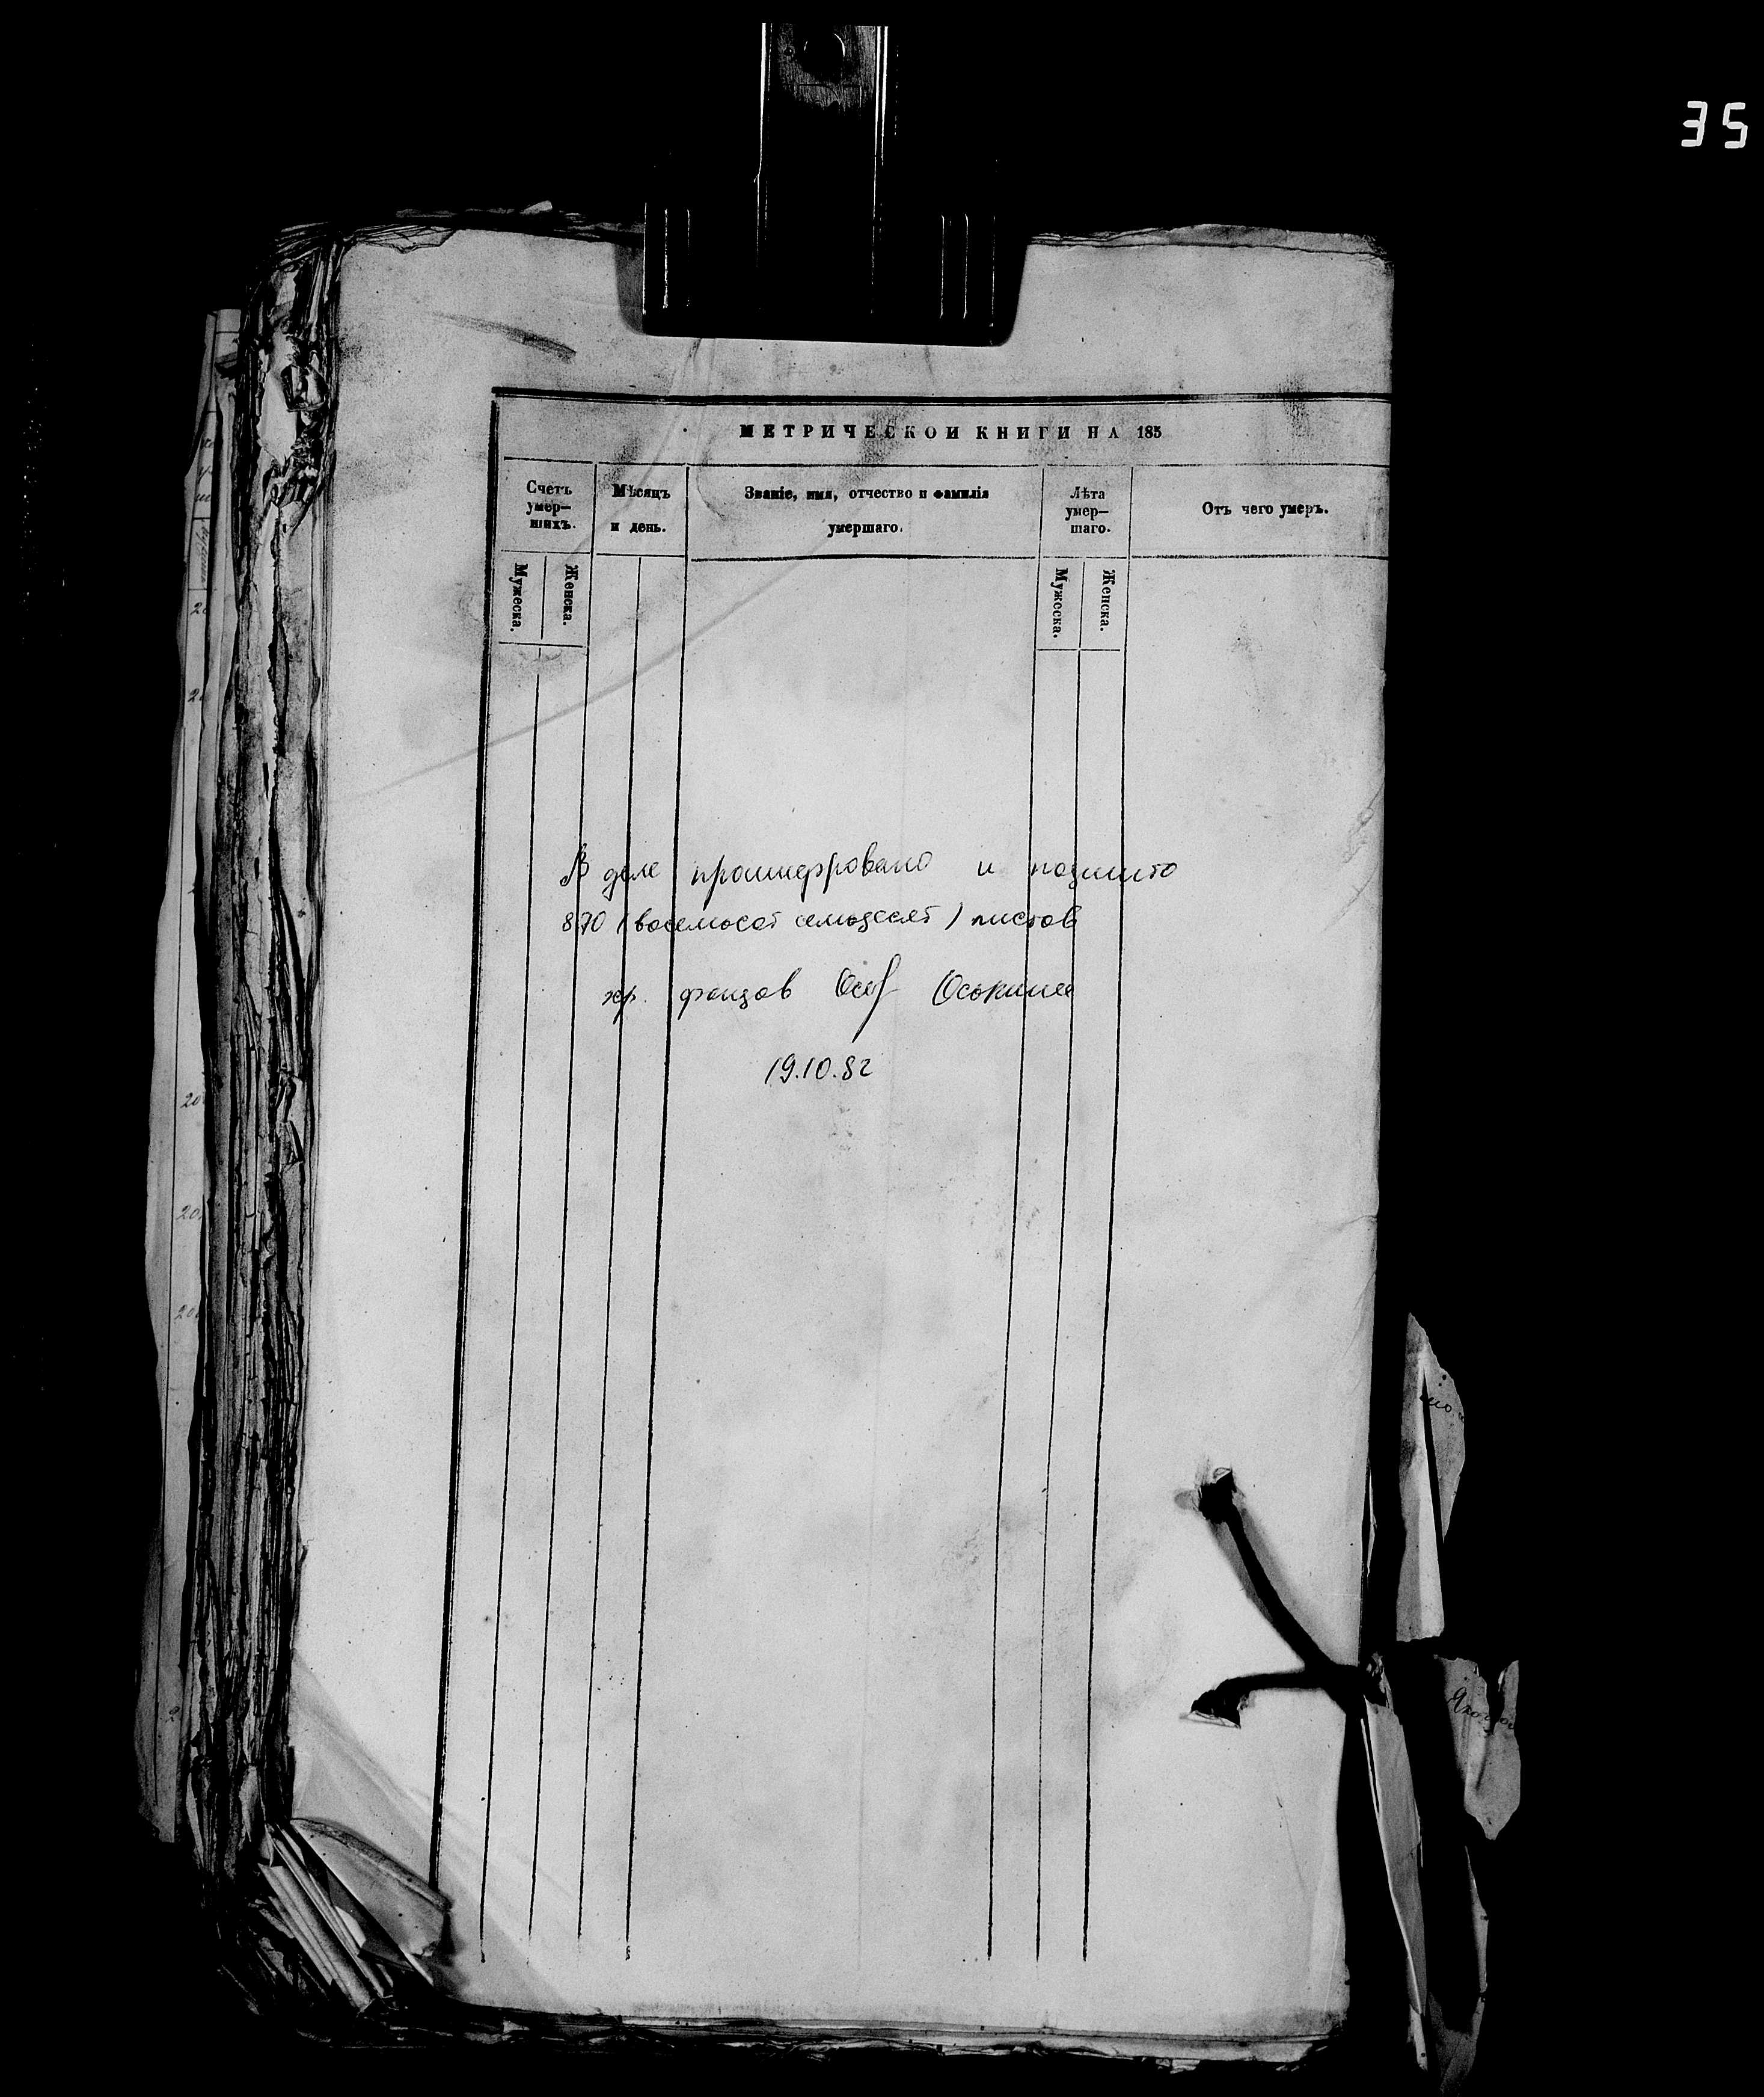 35
МЕТРИЧЕСКОЙ КНИГИ НА 185
Счетъ умер-
шихъ.
Мѣсяцъ
и день.
Званіе, имя, отчество и фамилія
умершаго.
Лѣта
умер-
шаго.
Отъ чего умеръ.
Мужеска.
Женска.
Мужеска.
Женска.
В деле прошифровано и подшито
870 (восемьсот семьдесят) листов
хр. фондов Оськина
19.10.82